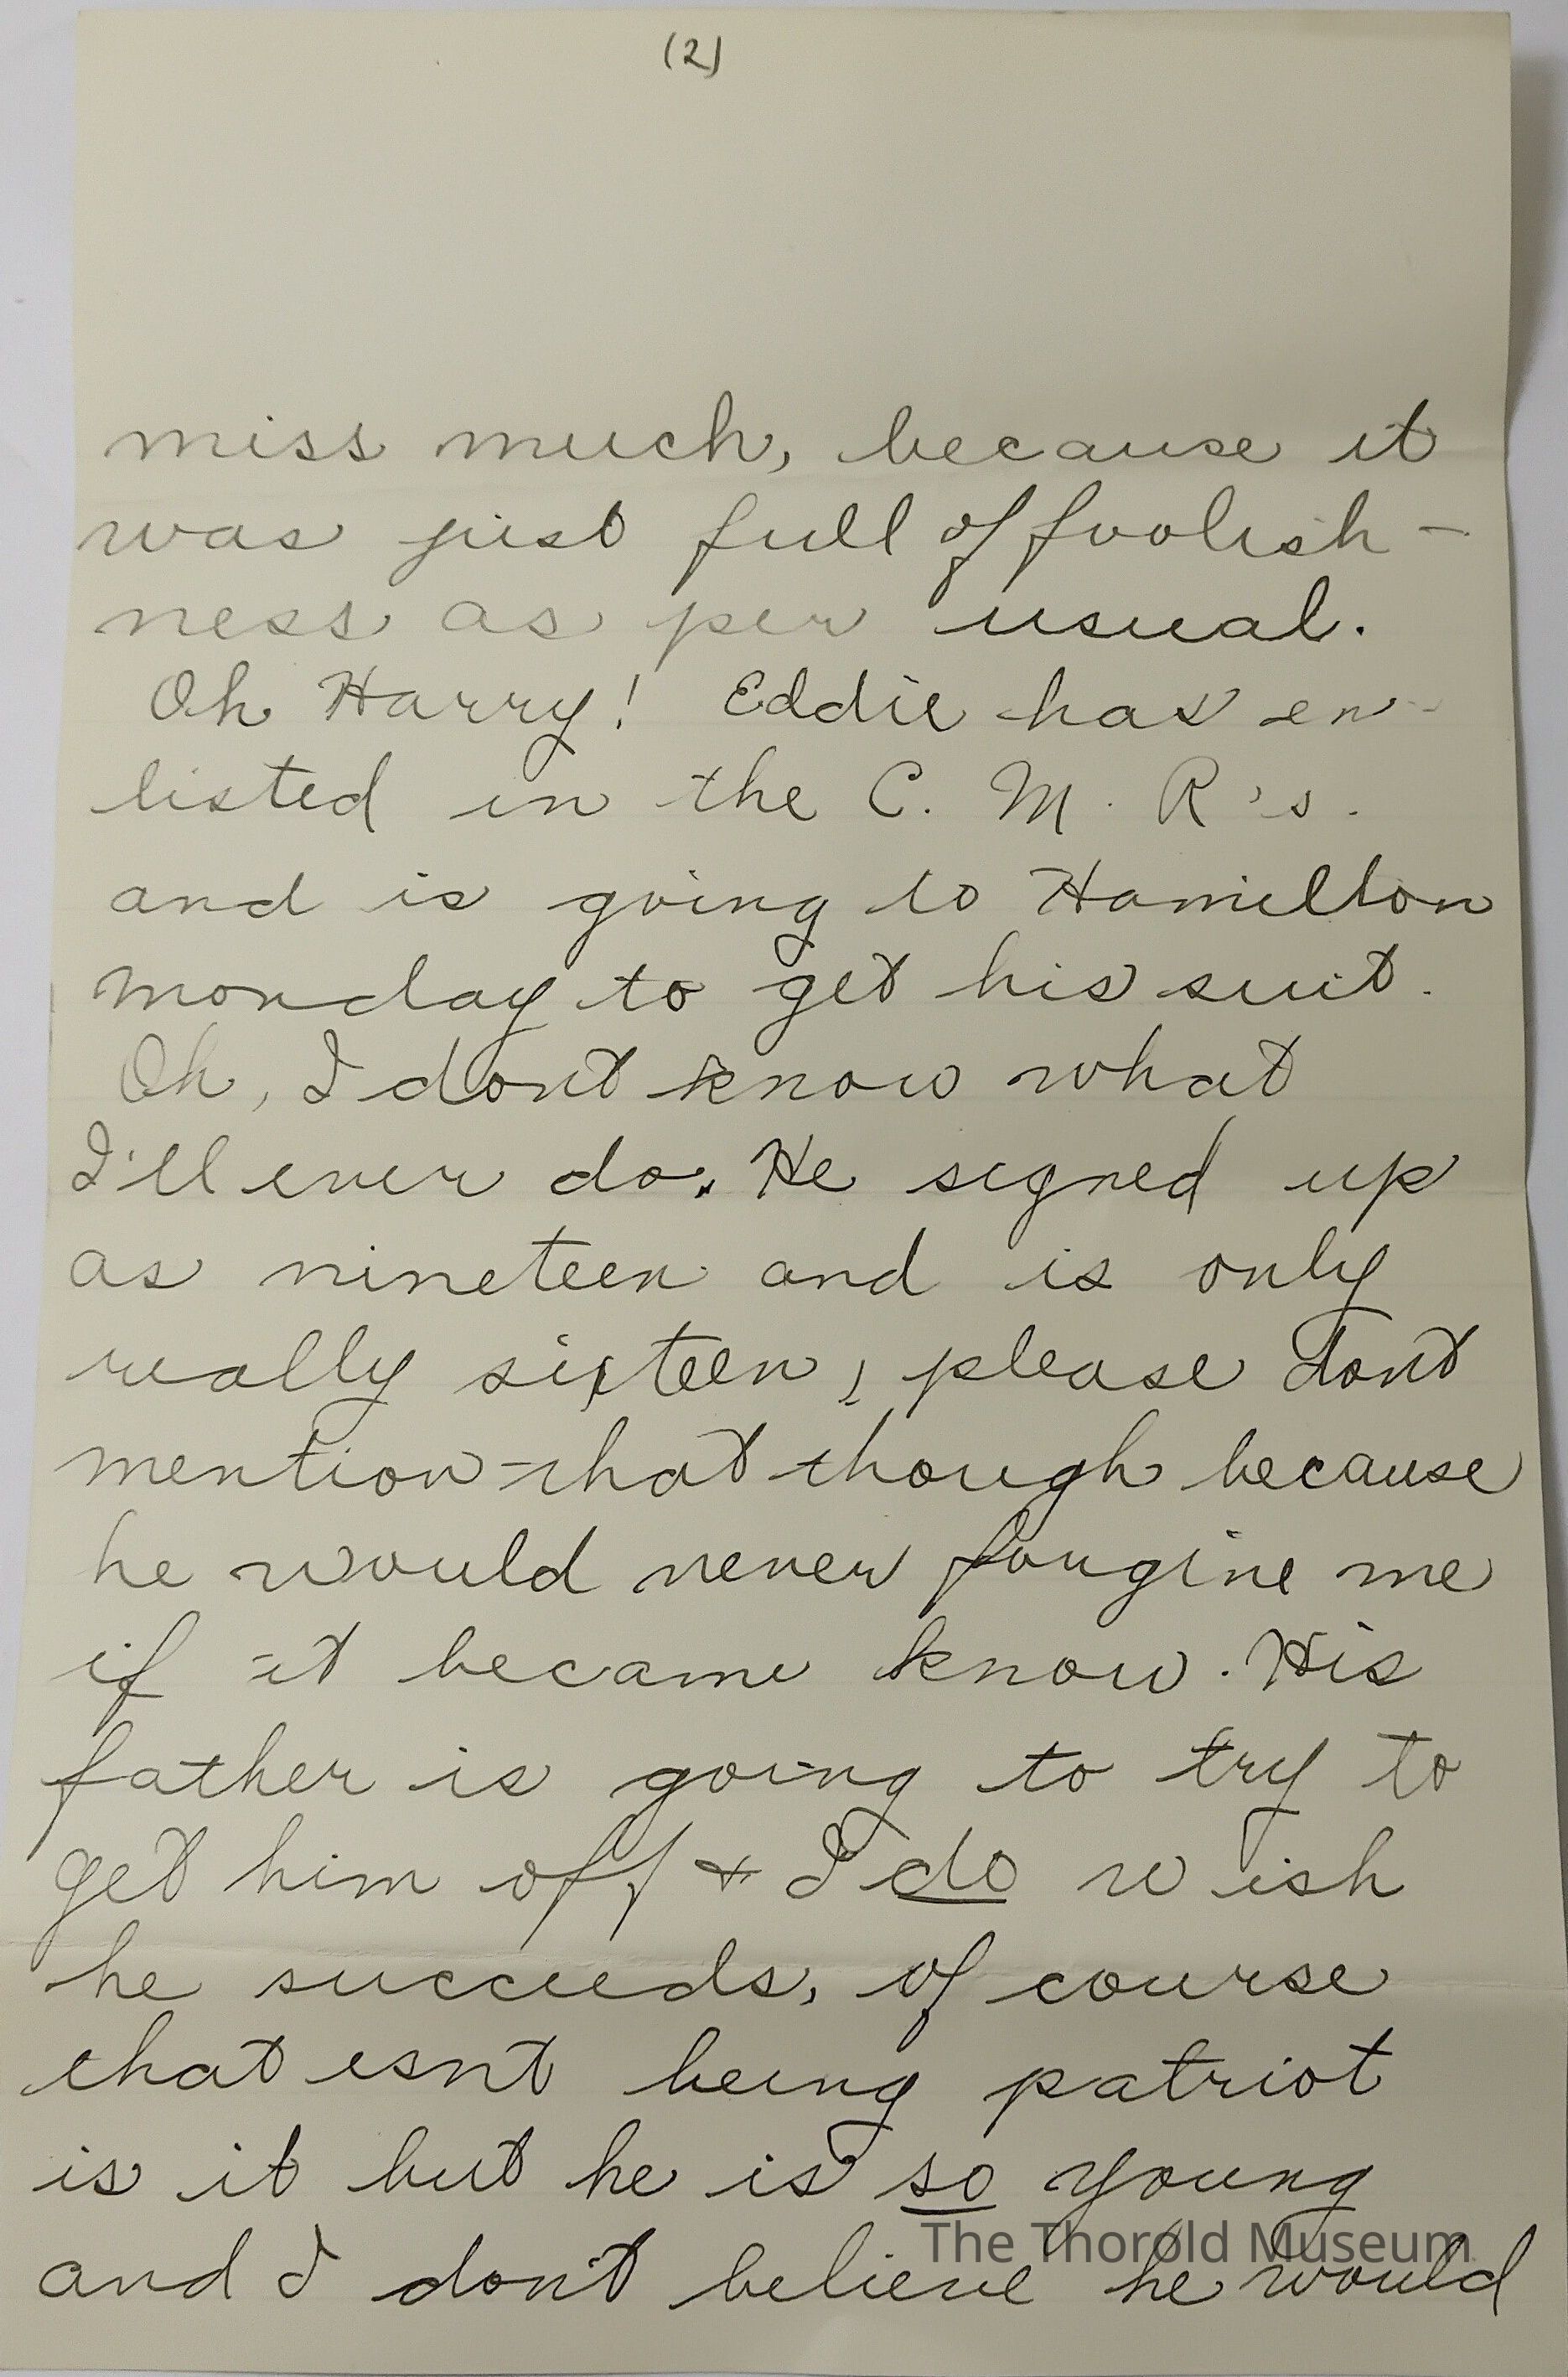 (2)
miss much, because it
was just full of foolish-
ness as per usual.
Oh Harry! Eddie has en-
listed in the C. M. R's.
and is going to Hamilton
monday to get his suit.
Oh, I dont know what
I'll ever do. He signed up
as nineteen and is only
really sixteen, please dont
mention that though because
he would never forgive me
if it became know. His
father is going to try to
get him off & I do wish
he succeeds, of course
that isnt being patriot
is it but he is so young
and I don't believe he would
The Thorold Museum